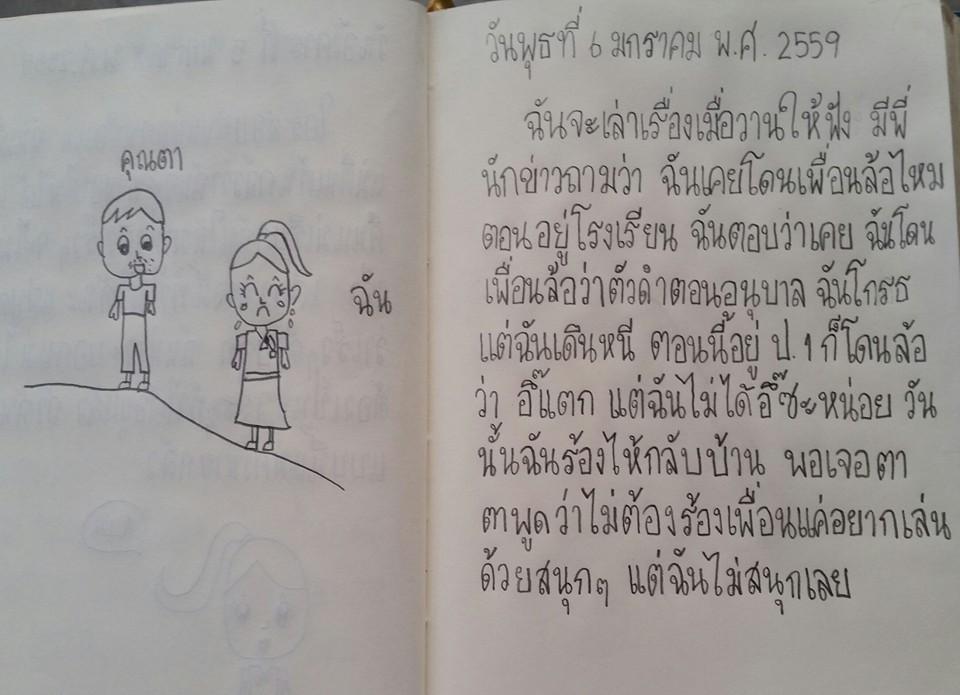 คุณตา
ฉัน
วันพุธที่ 6 มกราคม พ.ศ. 2559
ฉันจะเล่าเรื่องเมื่อวานให้ฟัง มีพี่
นักข่าวถามว่า ฉันเคยโดนเพื่อนล้อไหม
ตอนอยู่โรงเรียน ฉันตอบว่าเคย ฉันโดน
เพื่อนล้อว่าตัวดำตอนอนุบาล ฉันโกรธ
แต่ฉันเดินหนี ตอนนี้อยู่ ป.1 ก็โดนล้อ
ว่า อึ๊แตก แต่ฉันไม่ได้อึ๊ซะหน่อย วัน
นั้นฉันร้องไห้กลับบ้าน พอเจอตา
ตาพูดว่าไม่ต้องร้องเพื่อนแค่อยากเล่น
ด้วยสนุกๆ แต่ฉันไม่สนุกเลย